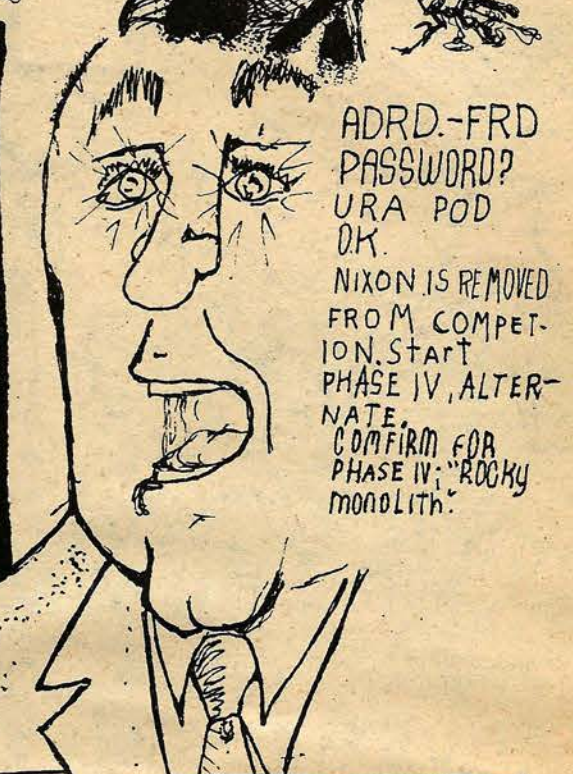 ADRD.-FRD
PASSWORD?
URA POD
O.K.
NIXON IS REMOVED
FROM COMPET-
ION. Start
PHASE IV, ALTER-
NATE.
COMFIRM FOR
PHASE IV; "ROCKY
monoLith."